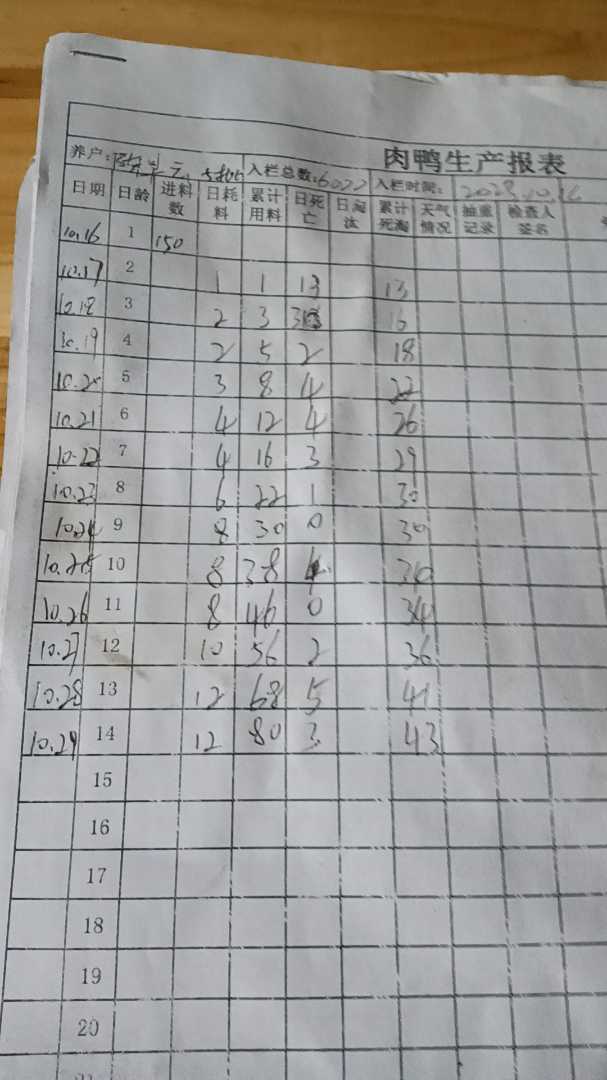 肉鸭生产报表
养户: 入栏总数: 入栏时间:
日期 日龄 进料数 日耗料 累计用料 日死亡 日淘汰 累计死淘 天气情况 抽重记录 检查人签名
10.16 1 150
10.17 2 1 1 13 13
10.18 3 2 3 3 16
10.19 4 2 5 2 18
10.20 5 3 8 4 22
10.21 6 4 12 4 26
10.22 7 4 16 3 29
10.23 8 6 22 1 30
10.24 9 8 30 0 30
10.25 10 8 38 4
10.26 11 8 46 0 34
10.27 12 10 56 2 36
10.28 13 12 68 5 41
10.29 14 12 80 3 43
15
16
17
18
19
20